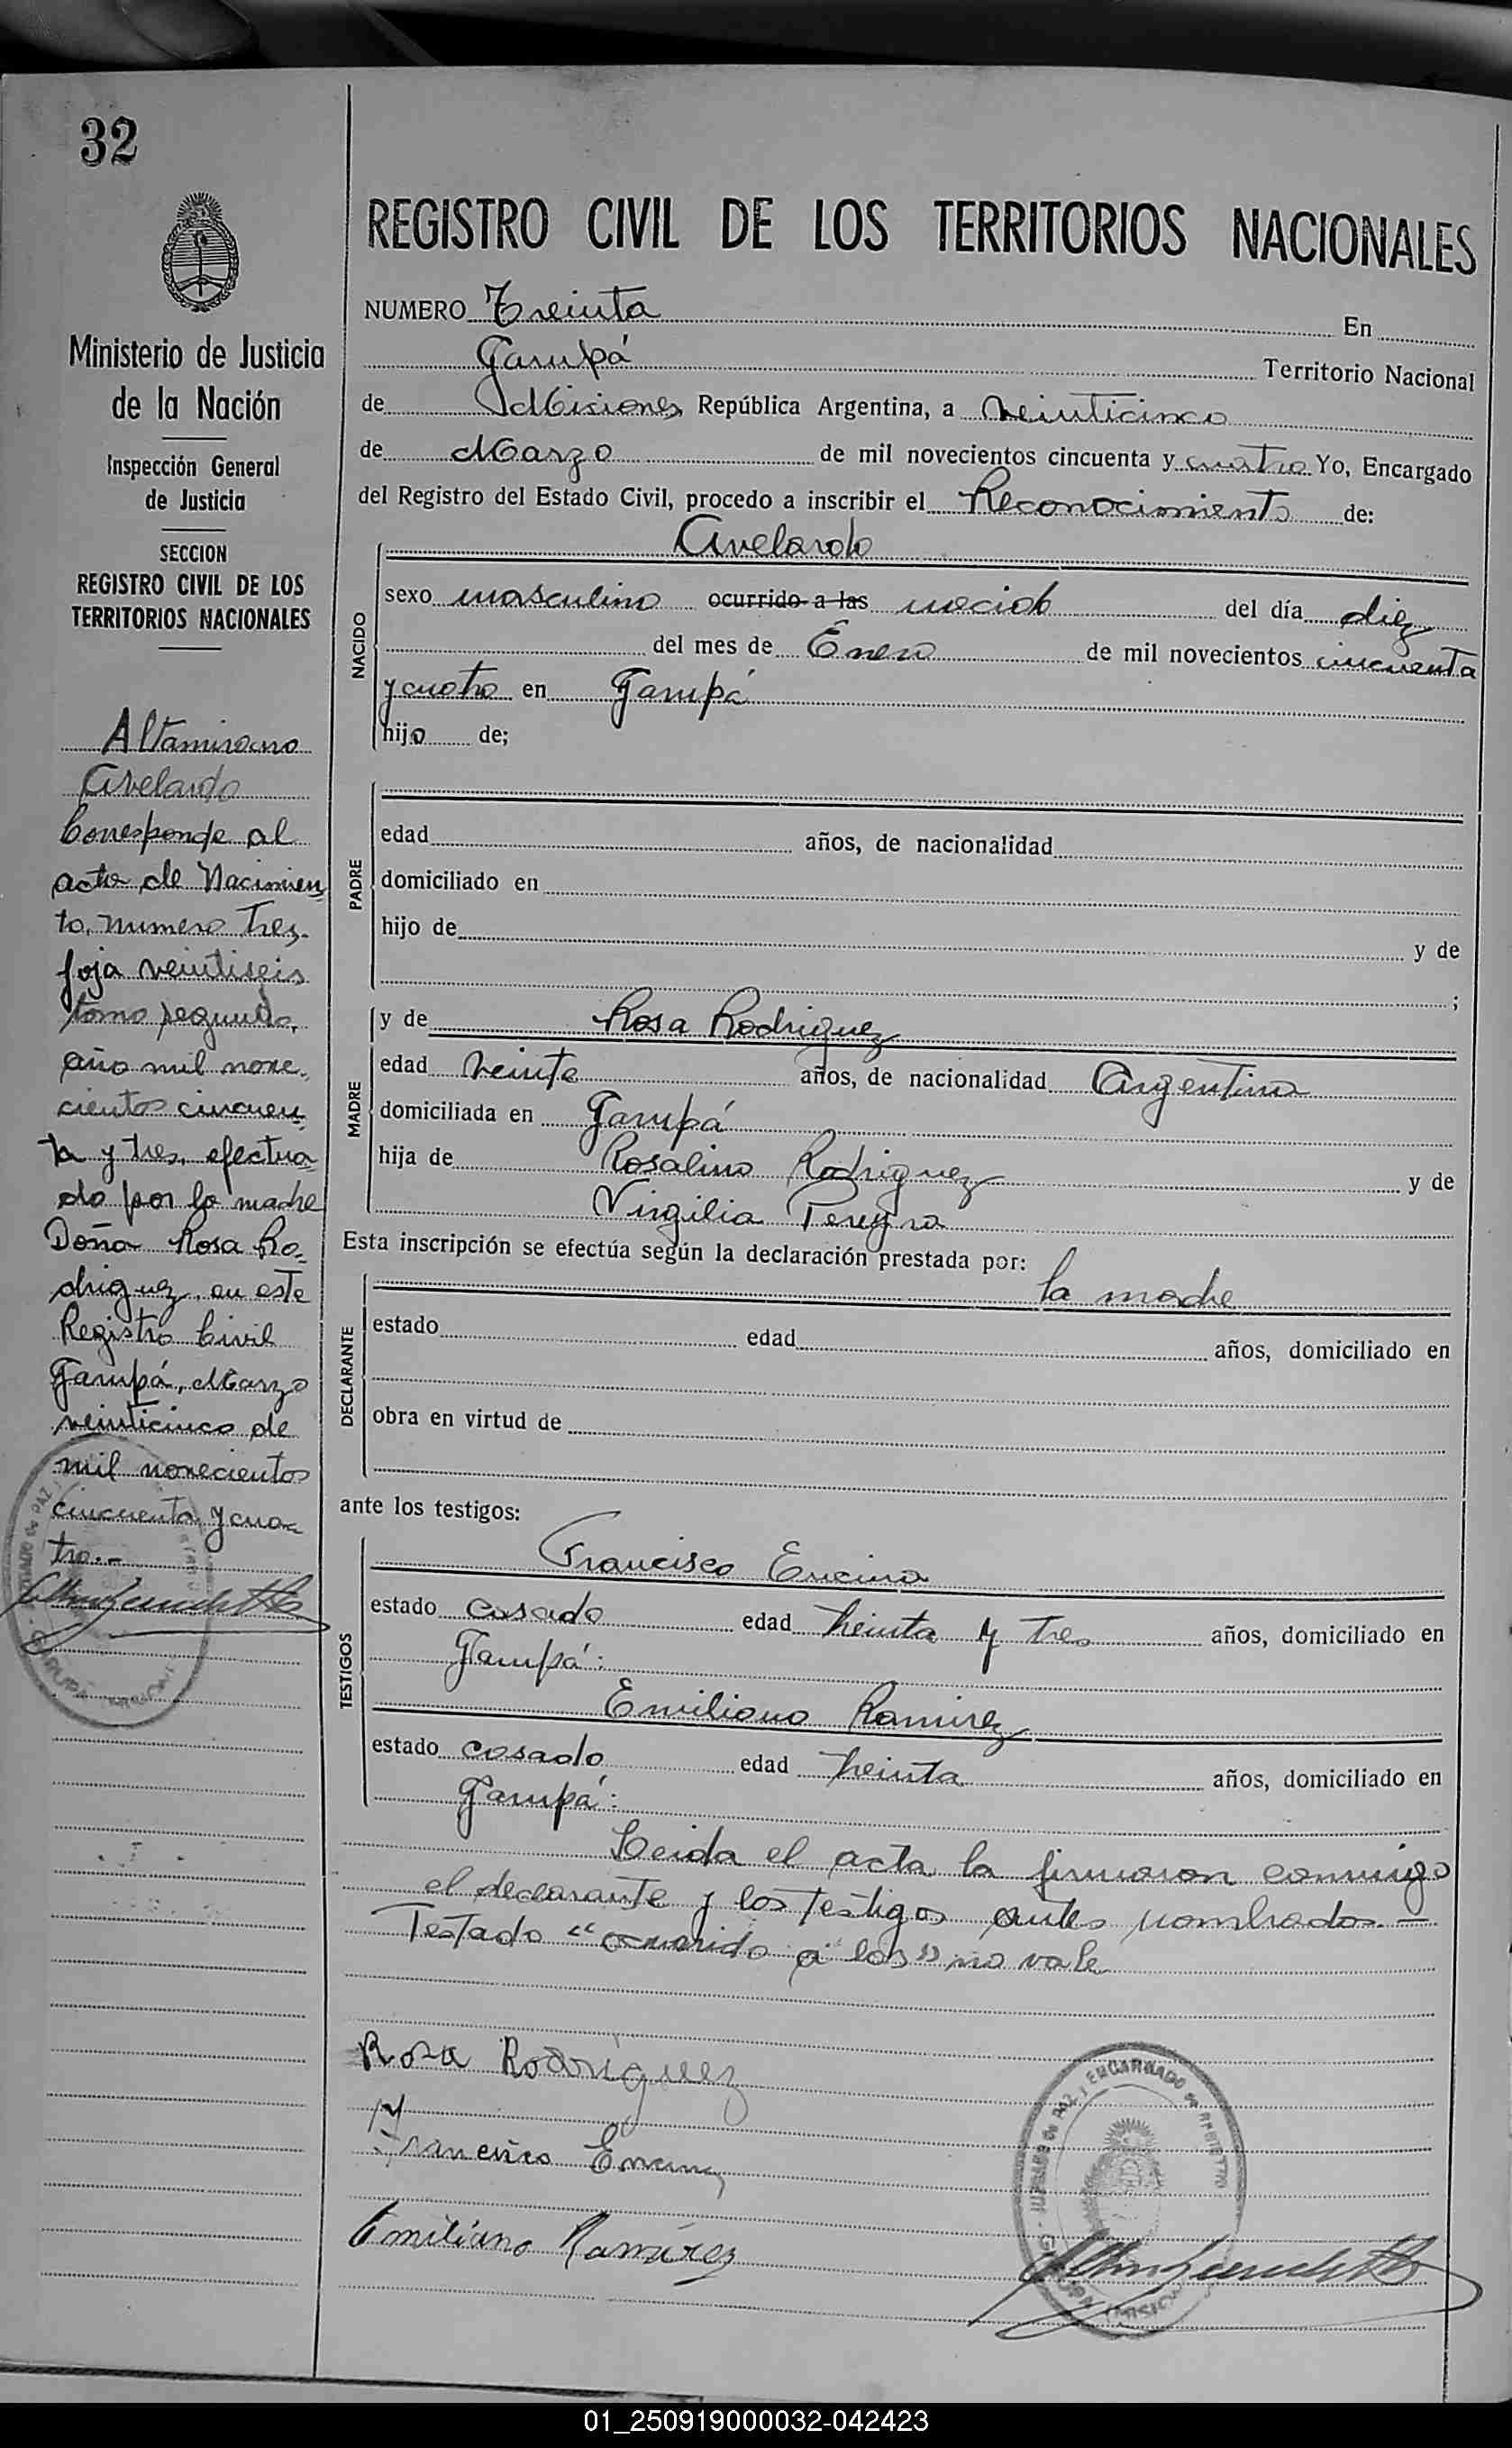 32
Ministerio de Justicia
de la Nación
Inspección General
de Justicia
SECCION
REGISTRO CIVIL DE LOS
TERRITORIOS NACIONALES
Altamirano
Avelardo
Corresponde al
acta de Nacimien
to, numero Tres
foja veintiseis
tomo segundo,
año mil nove-
cientos cincuen
ta y tres, efectua
do por la madre
Doña Rosa Ro-
driguez, en este
Registro Civil
Garupá, Marzo
veinticinco de
mil novecientos
cincuenta y cua-
tro.-
REGISTRO CIVIL DE LOS TERRITORIOS NACIONALES
NUMERO Treinta En
Garupá Territorio Nacional
de Misiones República Argentina, a veinticinco
de Marzo de mil novecientos cincuenta y cuatro Yo, Encargado
del Registro del Estado Civil, procedo a inscribir el Reconocimiento de:
Avelardo
NACIDO
sexo masculino ocurrido a las nacido del día diez
del mes de Enero de mil novecientos cincuenta
y cuatro en Garupá
hijo de;
PADRE
edad años, de nacionalidad
domiciliado en
hijo de y de
;
MADRE
y de Rosa Rodriguez
edad veinte años, de nacionalidad Argentina
domiciliada en Garupá
hija de Rosalino Rodriguez y de
Virgilia Pereyra
Esta inscripción se efectúa según la declaración prestada por:
la madre
DECLARANTE
estado edad años, domiciliado en
obra en virtud de
ante los testigos:
TESTIGOS
Francisco Encina
estado casado edad treinta y tres años, domiciliado en
Garupá:
Emiliano Ramirez
estado casado edad treinta años, domiciliado en
Garupá:
Leida el acta la firmaron conmigo
el declarante y los testigos antes nombrados.-
Testado "ocurrido a las" no vale
Rosa Rodriguez
Francisco Encina
Emiliano Ramirez
JUZGADO de PAZ y ENCARGADO de REGISTRO
GARUPA (MISIONES)
01_250919000032-042423